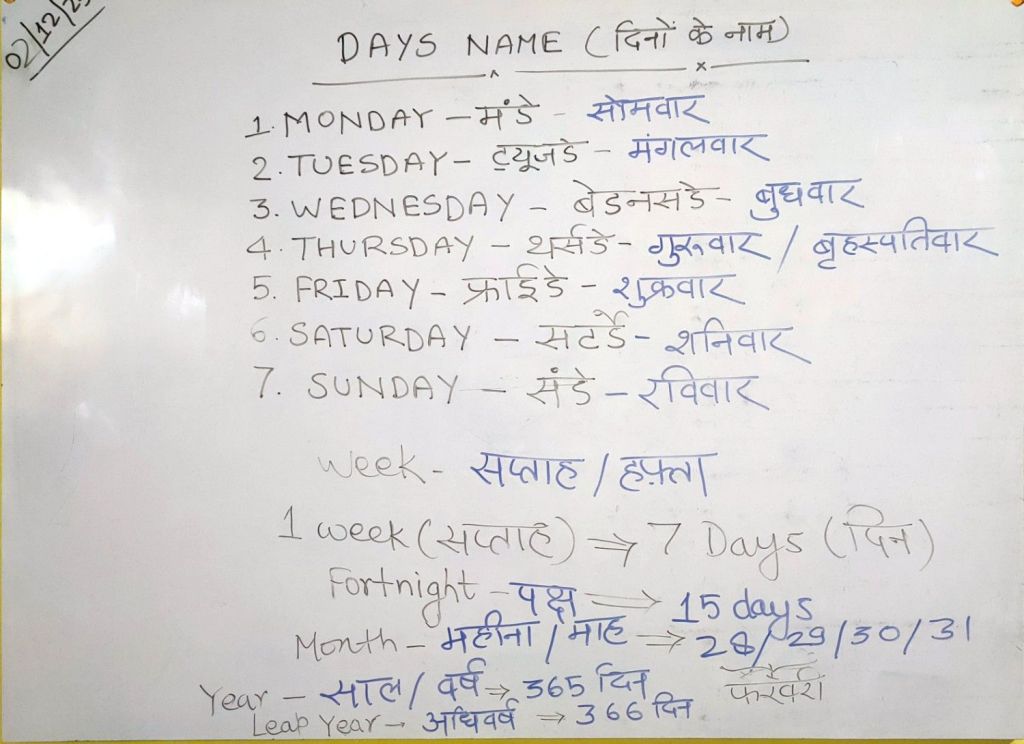 02/12/25
DAYS NAME (दिनों के नाम)
1. MONDAY – मंडे - सोमवार
2. TUESDAY – ट्यूजडे – मंगलवार
3. WEDNESDAY – बेडनसडे – बुधवार
4. THURSDAY – थर्सडे – गुरूवार / बृहस्पतिवार
5. FRIDAY – फ्राईडे – शुक्रवार
6. SATURDAY – सटर्डे – शनिवार
7. SUNDAY – संडे – रविवार
week - सप्ताह / हफ़्ता
1 week (सप्ताह) ⇒ 7 Days (दिन)
Fortnight – पक्ष ⇒ 15 days
Month – महीना / माह ⇒ 28/29/30/31
फरवरी
Year – साल / वर्ष ⇒ 365 दिन
Leap Year → अधिवर्ष ⇒ 366 दिन